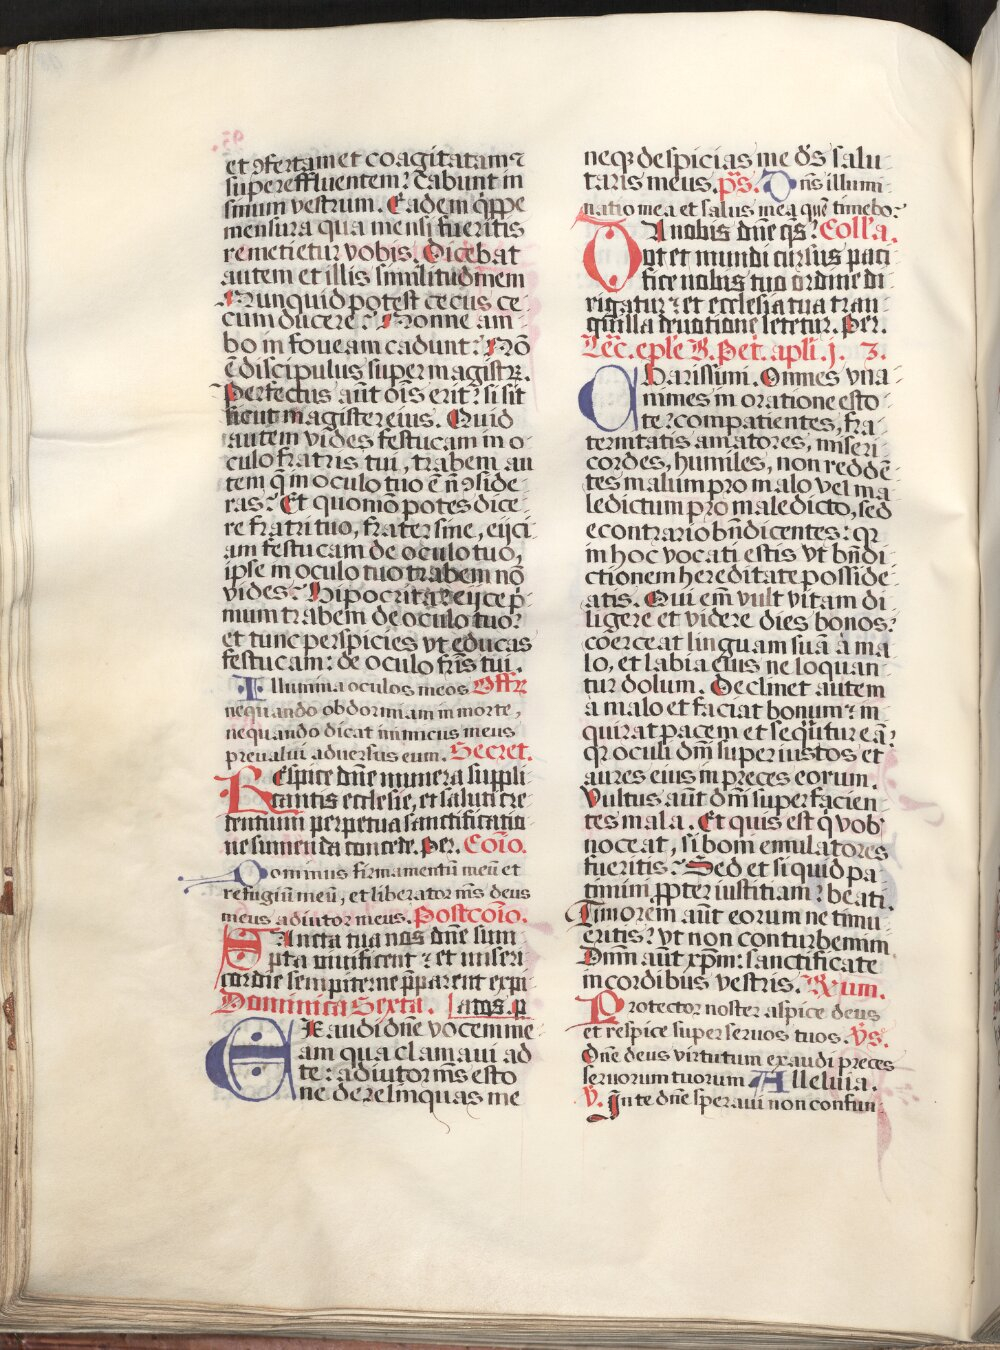 et ꝯfertam et coagitatam ⁊
supereffluentem? Dabunt in
sinum vestrum. Eadem q̄ppe
mensura qua mensi fueritis
remetietur vobis. Dicebat
autem et illis similitudinem
Nunquid potest cecus ce-
cum ducere? Nonne am-
bo in foueam cadunt? Nō
ē discipulus super magistꝝ.
Perfectus aūt oīs erit? si sit
sicut magister eius. Quid
autem vides festucam in o-
culo fratris tui, trabem au
tem q̄ in oculo tuo ē n̄ ꝯside
ras? Et quomō potes dice-
re fratri tuo, frater sine, eijci
am festucam de oculo tuo,
ipse in oculo tuo trabem nō
vides? Hipocrita? eijce p̄
mum trabem de oculo tuo?
et tunc perspicies vt educas
festucam: de oculo fr̄is tui.
Illumina oculos meos Offꝝ
nequando obdormiam in morte,
nequando dicat inimicus meus
preualui aduersus eum. Secret.
Respice dn̄e munera suppli-
cantis ecclesie, et saluti cre
dentium perpetua sanctificatio-
ne sumenda concede. Per. Coīo.
Dominus firmamentū meū et
refugiū meū, et liberator m̄s deus
meus adiutor meus. Postcoīo.
Sancta tua nos dn̄e sum
pta viuificent: et miseri
cordie sempiterne p̄parent expi
Dominica Sexta. | atos. p̄
Exaudi dn̄e vocem me-
am qua clamaui ad
te: adiutor m̄s esto
ne derelinquas me
neqꝫ despicias me d̄s salu-
taris meus. p̄s. Dn̄s illumi-
natio mea et salus mea quē timebo?
Da nobis dn̄e q̄s? Coll'a.
vt et mundi cursus paci
fice nobis tuo ordine di-
rigatur: et ecclesia tua tran-
quilla deuotione letetur. Per.
Lec̄. ep̄le B. Pet. apl̄i. j. 3.
Charissimi. Omnes vna-
nimes in oratione esto-
te: compatientes, fra-
ternitatis amatores, miseri
cordes, humiles, non reddē-
tes malum pro malo vel ma-
ledictum pro maledicto, sed
econtrario bn̄dicentes: qꝛ
in hoc vocati estis vt bn̄di-
ctionem hereditate posside-
atis. Qui em̄ vult vitam di-
ligere et videre dies bonos?
coerceat linguam suā a ma-
lo, et labia eius ne loquan
tur dolum. Declinet autem
a malo et faciat bonum: in-
quirat pacem et sequitur eā?
qꝛ oculi dn̄i super iustos et
aures eius in preces eorum.
Vultus aūt dn̄i super facien-
tes mala. Et quis est q̄ vob̄
noceat, si boni emulatores
fueritis? Sed et si quid pa-
timini ꝓpter iustitiam? beati.
Timorem aūt eorum ne timu-
eritis? vt non conturbemini
Dn̄m aūt xp̄m: sanctificate
in cordibus vestris. R̄um.
Protector noster aspice deus
et respice super seruos tuos. V̄s.
Dn̄e deus virtutum exaudi preces
seruorum tuorum Alleluia.
V̄. In te dn̄e speraui non confun-